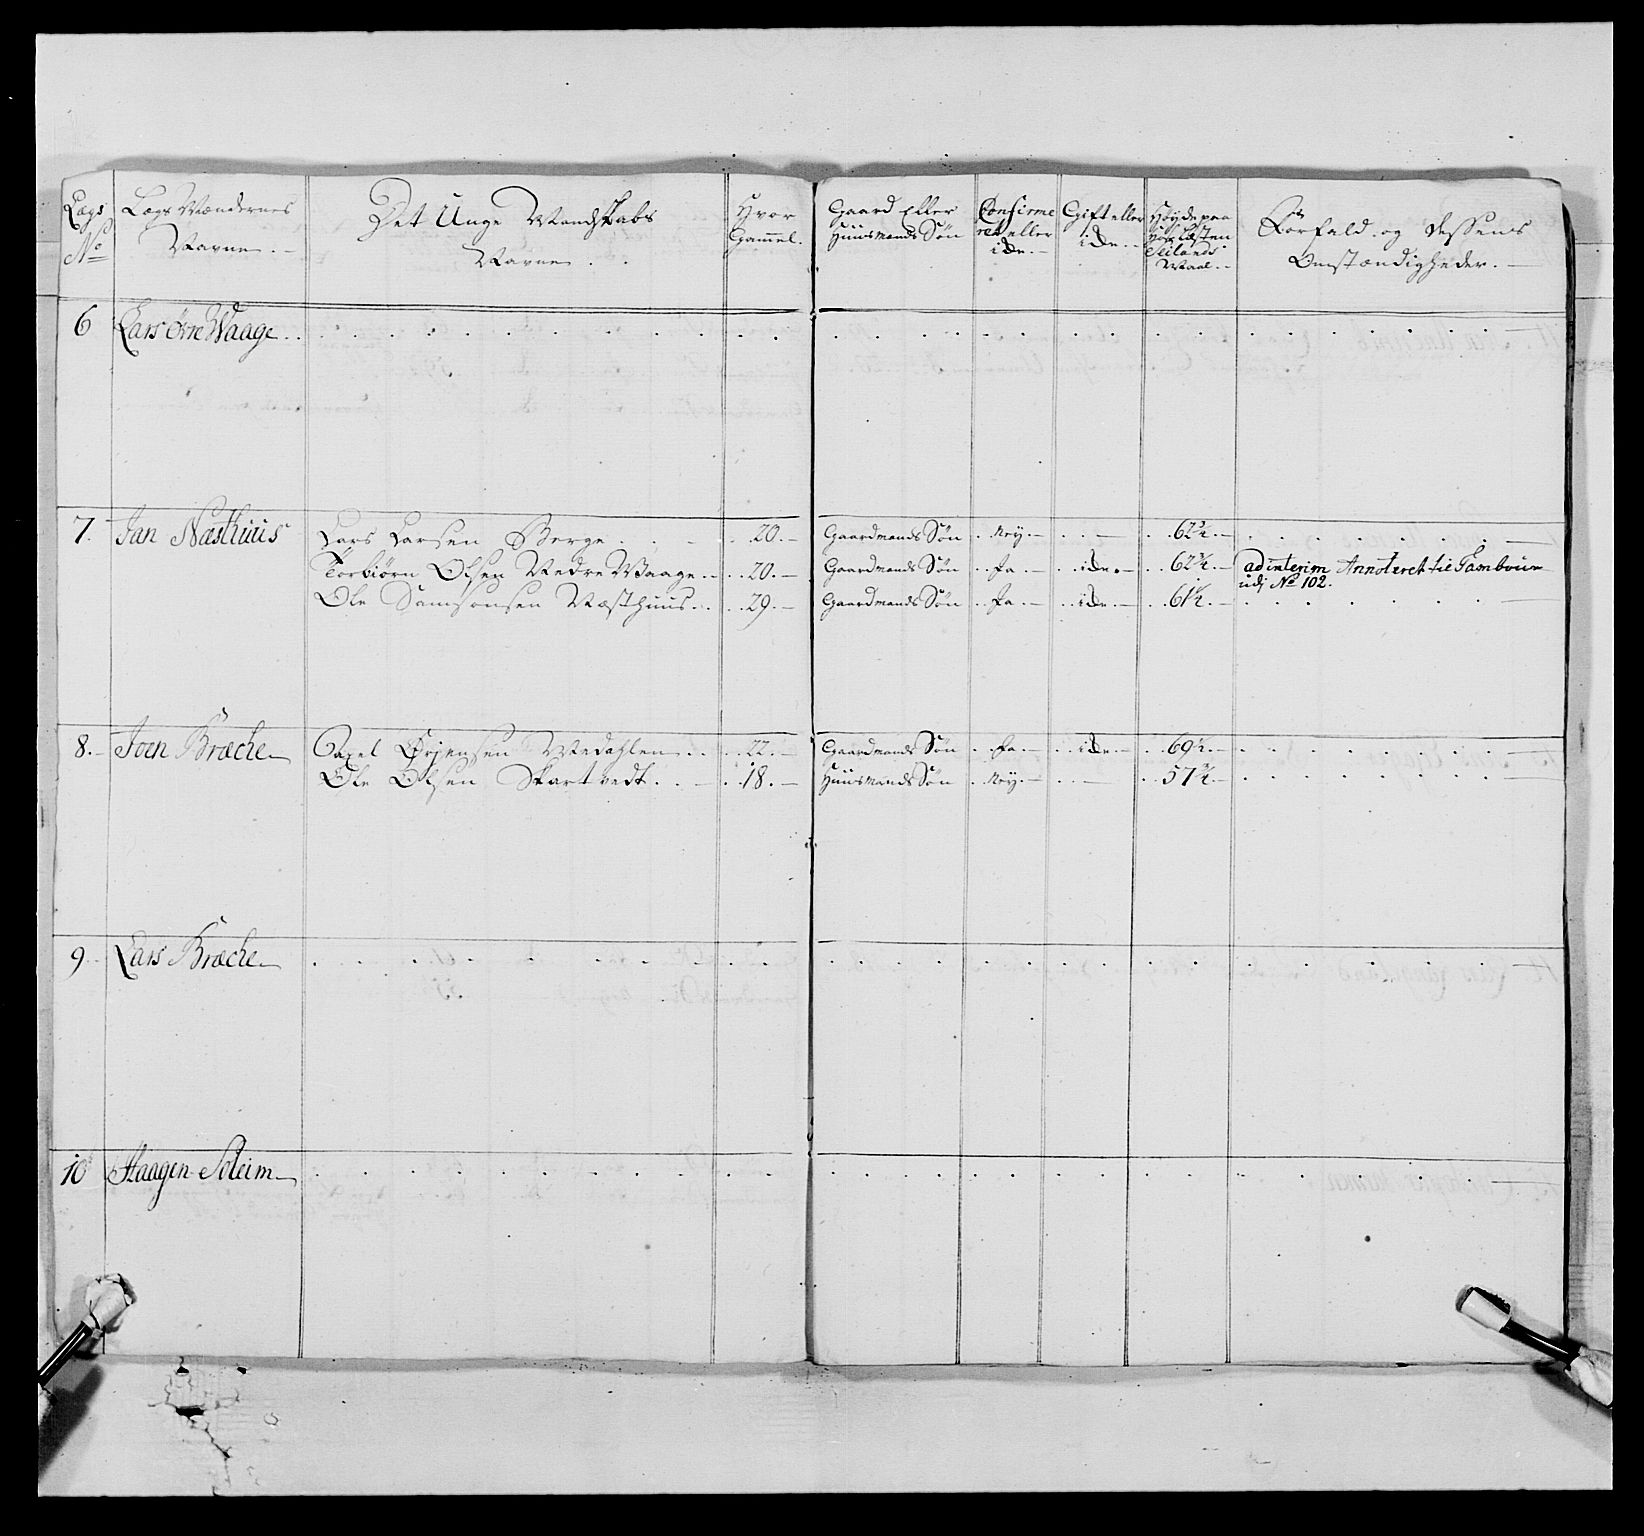 Lægs No
Lægs Mændernes Navne.
Det Unge Mandskabs Navne.
Hvor Gammel.
Gaard Eller Huusmands Søn
Confirmeret eller icke.
Gift eller icke.
Høyde paa
Seilands Maal.
Forfald og dessens Omstændigheder.
6 Lars Øvre Waage
7. Jan Næsthuus Lars Larsen Berge 20. Gaardmands Søn Ney 62¾
Torbiørn Olsen Nedre Waage 20. Gaardmands Søn Ja icke 62¾ ad interim Annoteret til Tambour
udj No 102.
Ole Samsonsen Næsthuus 29. Gaardmands Søn Ja icke 61½
8. Joen Bræche Ørjensen Medahlen 22. Gaardmands Søn Ja icke 69½
Ole Olsen Skartvedt 18. Huusmands Søn Ney 57¾
9. Lars Bræche
10 Haagen Seleim